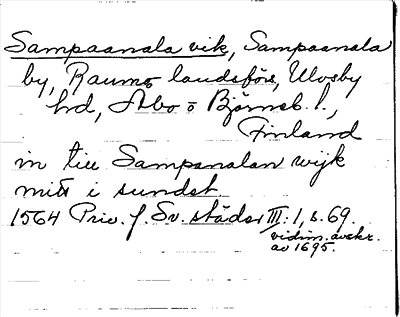 Sampaanala vik, Sampaanala
by, Raumo landsförs, Ulvsby
hd, Åbo o Björneb. l.,
Finland
in till Sampanalan wijk
mitt i sundet
1564 Priv. f. Sv. städer III: 1, s. 69.
vidim. avskr.
av 1695.